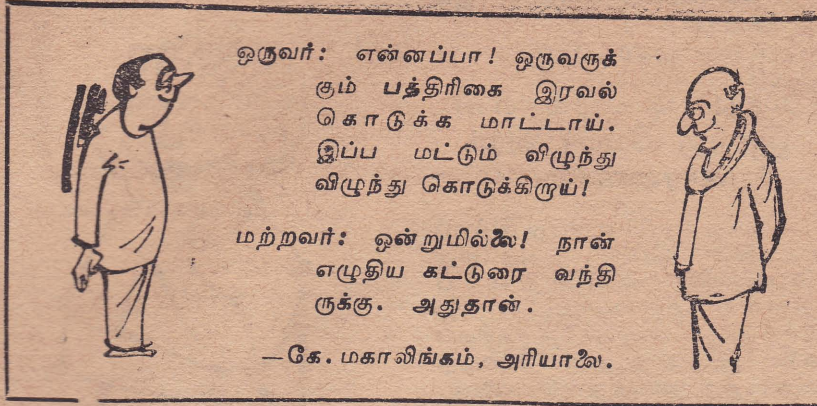 ஒருவர்: என்னப்பா! ஒருவருக்
கும் பத்திரிகை இரவல்
கொடுக்க மாட்டாய்.
இப்ப மட்டும் விழுந்து
விழுந்து கொடுக்கிறாய்!
மற்றவர்: ஒன்றுமில்லை! நான்
எழுதிய கட்டுரை வந்தி
ருக்கு. அதுதான்.
—கே. மகாலிங்கம், அரியாலை.